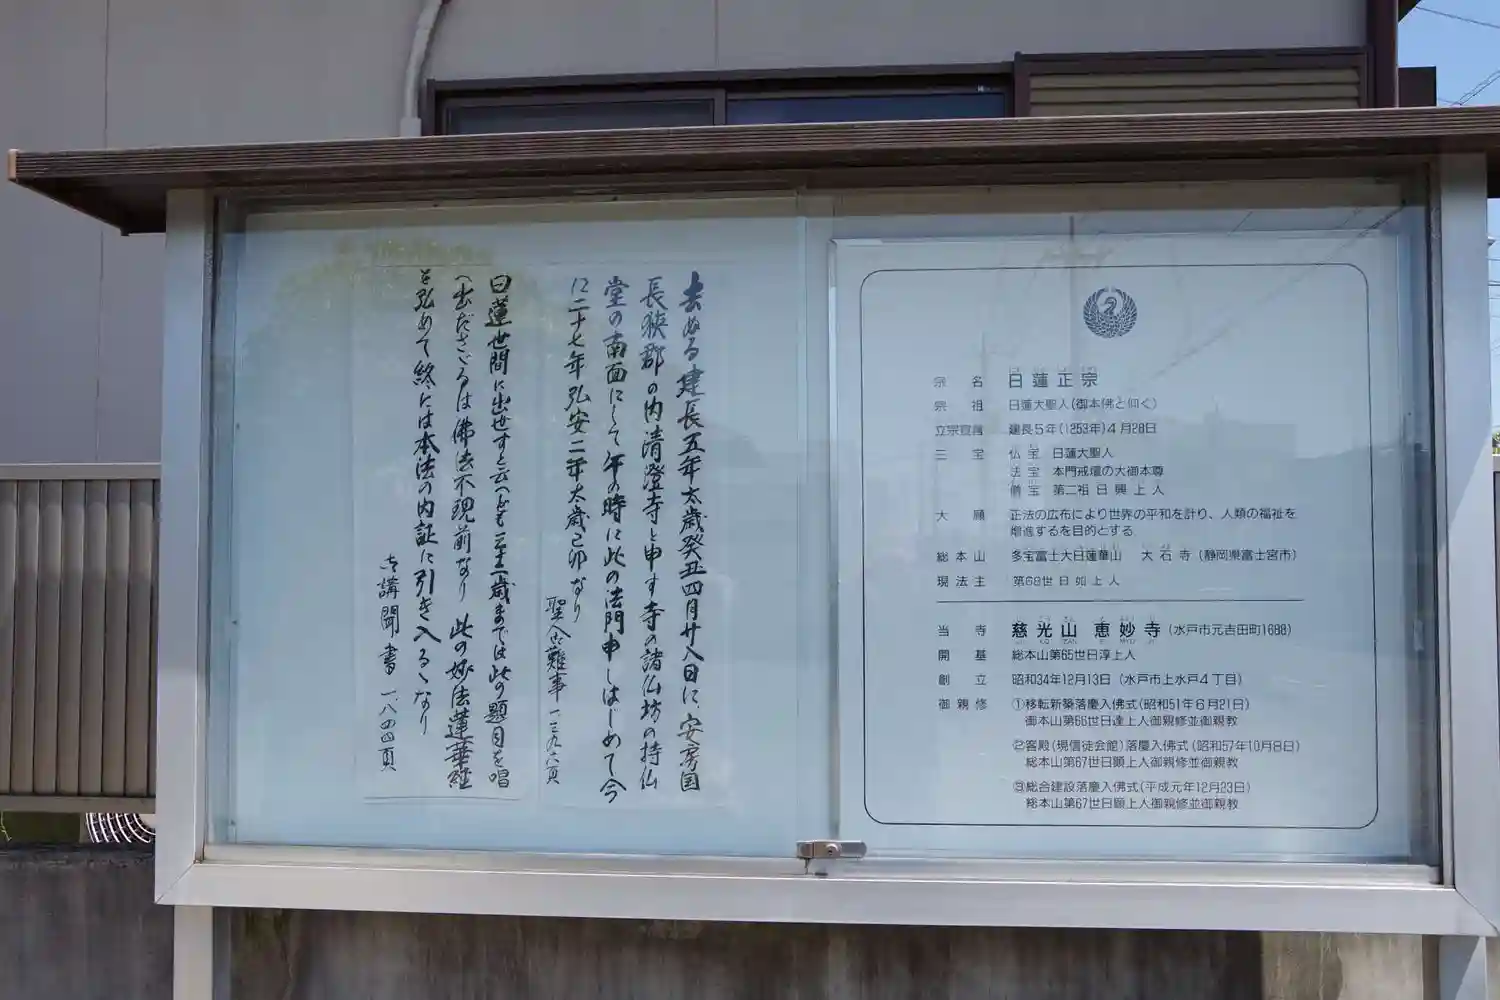 去ぬる建長五年太歳癸丑四月廿八日に、安房国
長狭郡の内清澄寺と申す寺の諸仏坊の持仏
堂の南面にして午の時に此の法門申しはじめて今
に二十七年弘安二年太歳己卯なり
聖人御難事 一三九六頁
日蓮世間に出世すと云へども三十二歳までは此の題目を唱
へ出ださざるは佛法不現前なり 此の妙法蓮華経
を弘めて終には本法の内証に引き入るゝなり
御講聞書 一八四四頁
宗名 日蓮正宗
宗祖 日蓮大聖人(御本佛と仰ぐ)
立宗宣言 建長5年(1253年)4月28日
三宝 仏宝 日蓮大聖人
法宝 本門戒壇の大御本尊
僧宝 第二祖日興上人
大願 正法の広布により世界の平和を計り、人類の福祉を
増進するを目的とする
総本山 多宝富士大日蓮華山 大石寺(静岡県富士宮市)
現法主 第68世日如上人
当寺 慈光山 恵妙寺(水戸市元吉田町1688)
開基 総本山第65世日淳上人
創立 昭和34年12月13日(水戸市上水戸4丁目)
御親修 ①移転新築落慶入佛式(昭和51年6月21日)
御本山第66世日達上人御親修並御親教
②客殿(現信徒会館)落慶入佛式(昭和57年10月8日)
総本山第67世日顕上人御親修並御親教
③総合建設落慶入佛式(平成元年12月23日)
総本山第67世日顕上人御親修並御親教